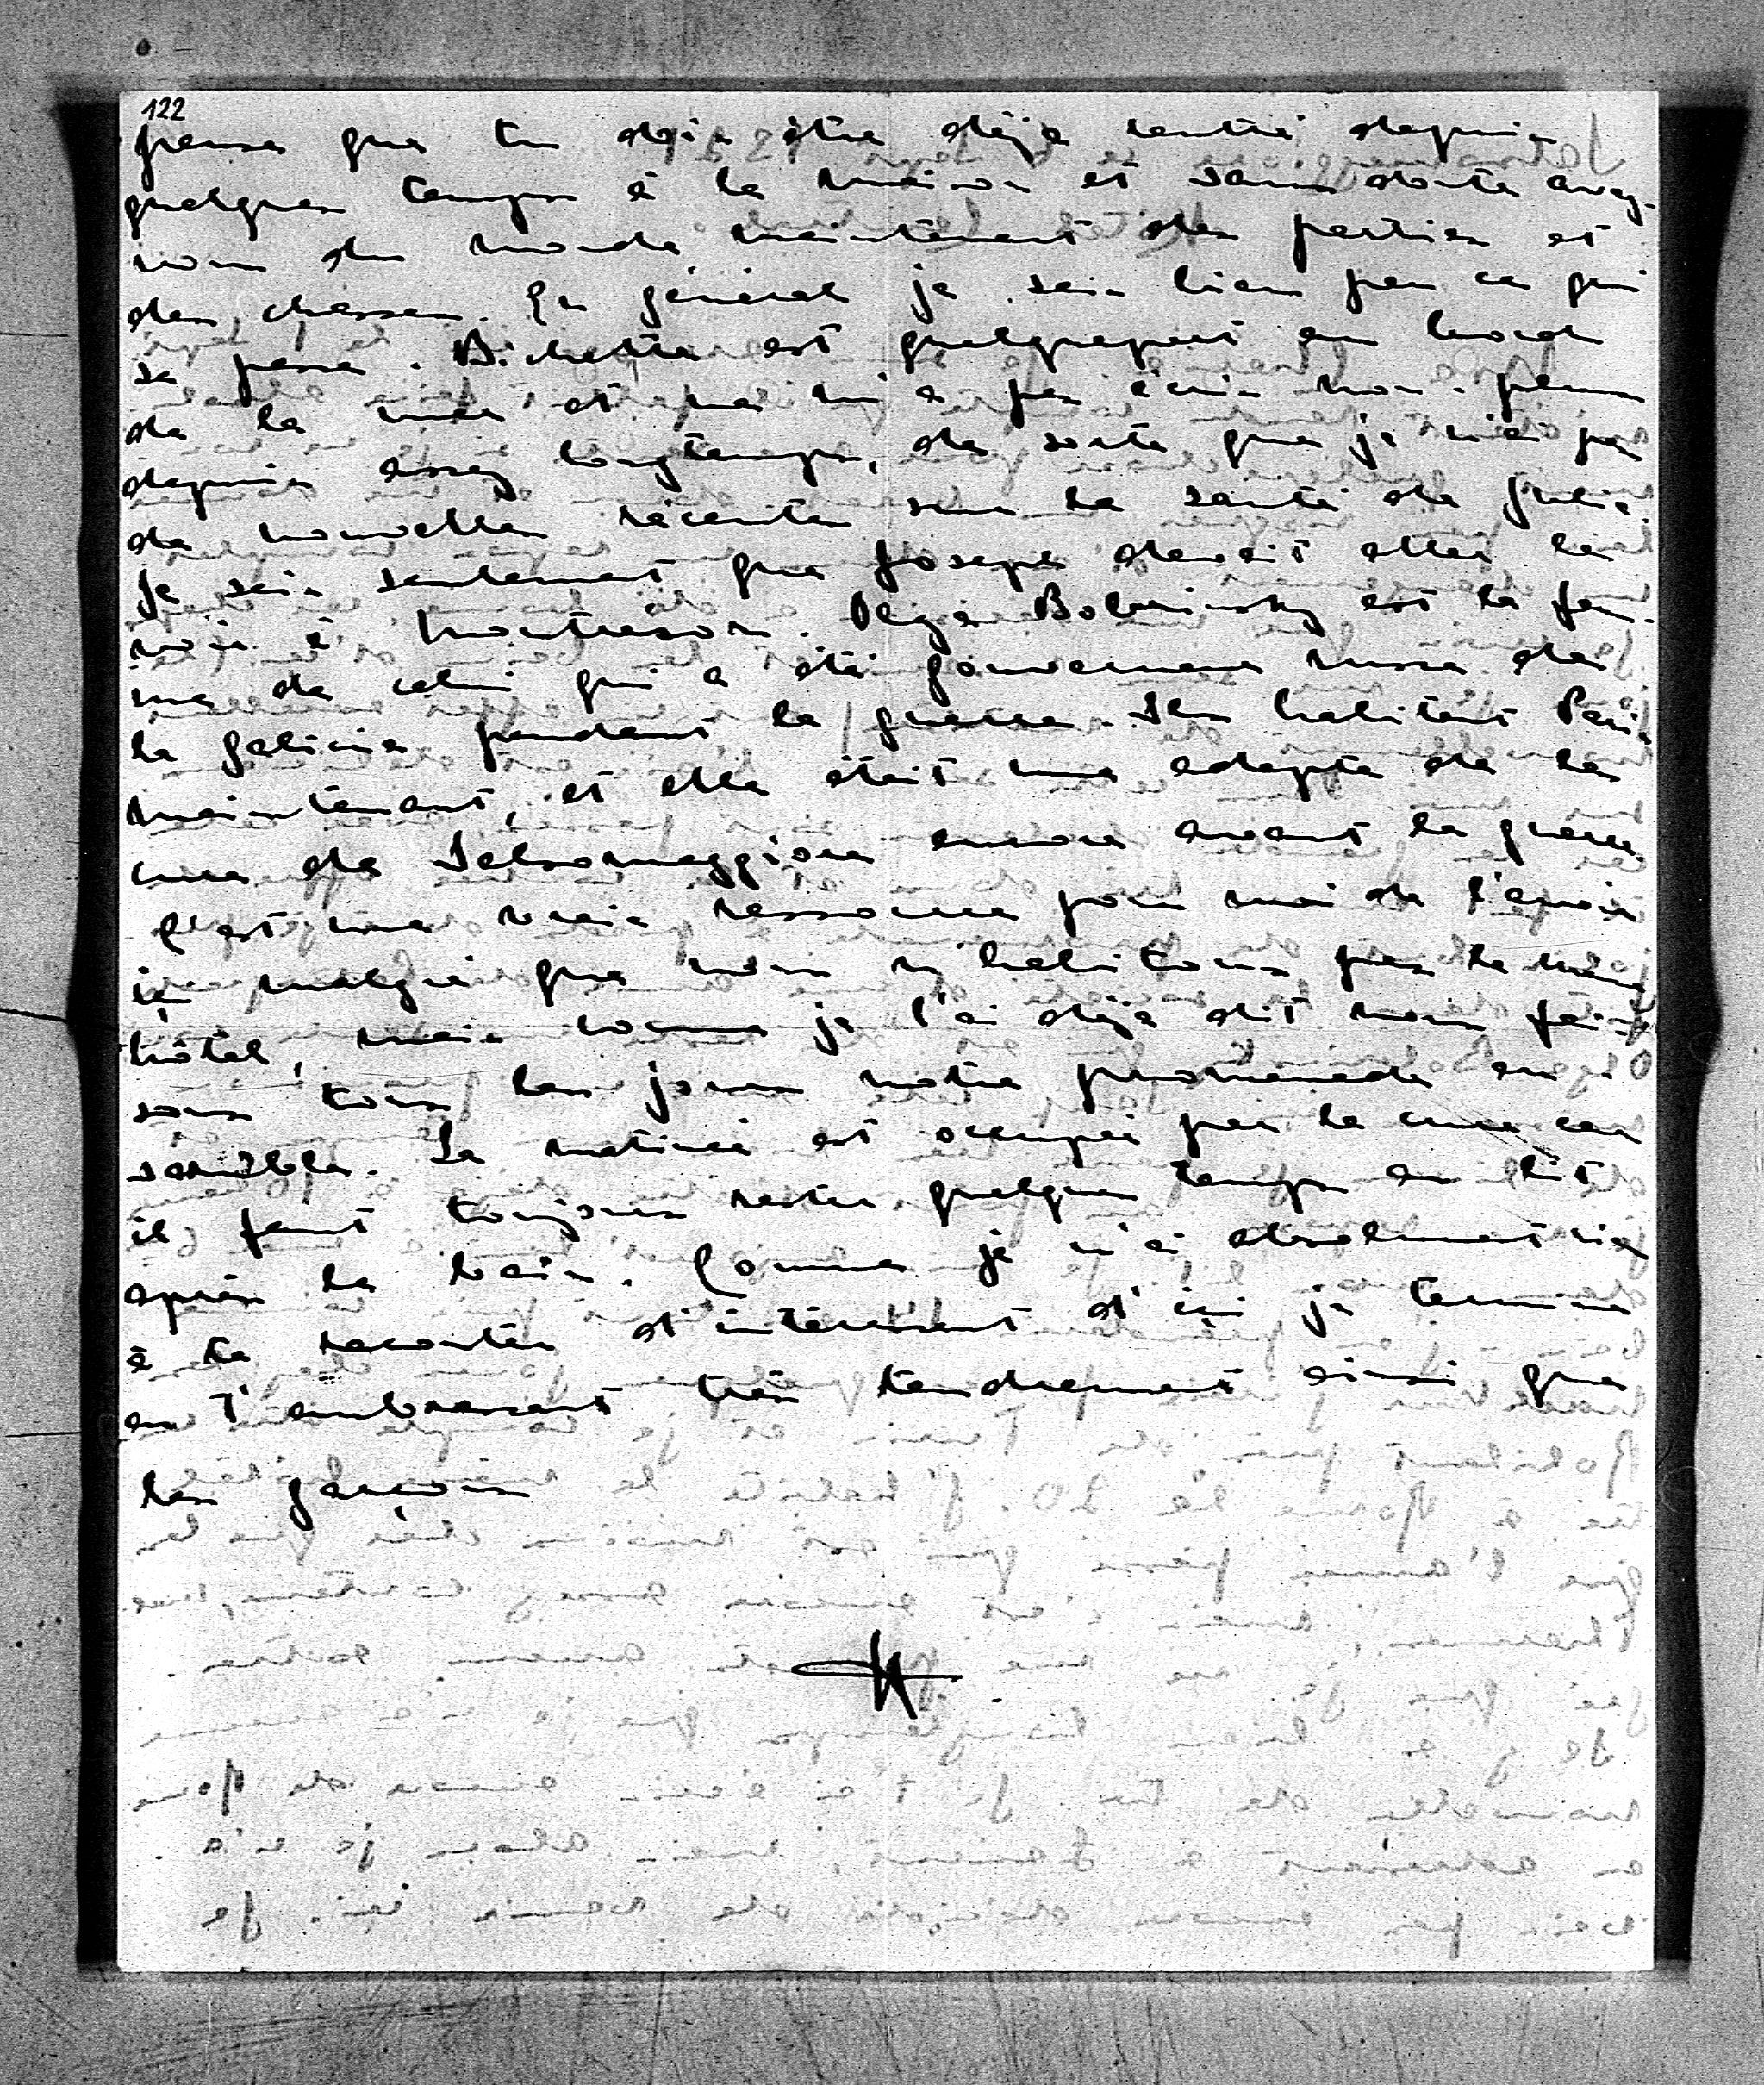 122
pense que tu dois être déjà rentré depuis
quelques temps à la maison et sans doute avez-
vous du monde maintenant des parties et
des chasses. En général je sais bien peu ce qui
se passe. Bichette est quelquepart au bord
de la mer et ne m'a pas écris non plus
depuis assez longtemps, de sorte que je n'ai pas
de nouvelles récentes sur la santé de Julie.
Je sais seulement que Joseph devait aller les
voir à Montrésor. Olga Bobrinsky est la fem-
me de celui qui a été gouverneur russe de
la Galicie pendant la guerre. Ils habitent Paris
maintenant, et elle était une adepte de la
cure de Salsomaggiore encore avant la guerre
C'est une vraie ressource pour moi de l'avoir
ici malgré que nous n'habitons pas le même
hôtel, mais comme je t'ai déjà dit nous fai-
sons tous les jours notre promenade en-
semble. La matinée est occupée par la cure car
il faut toujours rester quelque temps au lit
après le bain. Comme je n'ai absolument rien
à te raconter d'intéressant d'ici je termine
en t'embrassant très tendrement ainsi que
les garçons